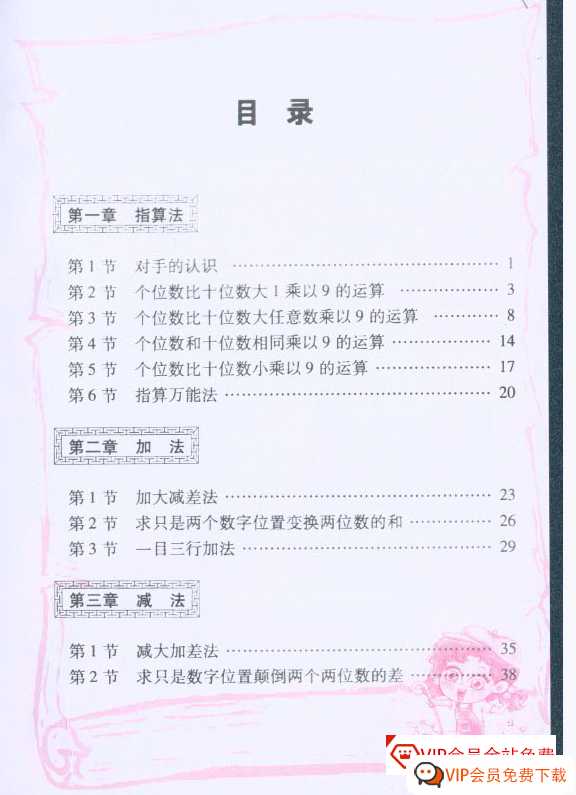 目 录
第一章 指算法
第1节 对手的认识 …… 1
第2节 个位数比十位数大1乘以9的运算 …… 3
第3节 个位数比十位数大任意数乘以9的运算 …… 8
第4节 个位数和十位数相同乘以9的运算 …… 14
第5节 个位数比十位数小乘以9的运算 …… 17
第6节 指算万能法 …… 20
第二章 加 法
第1节 加大减差法 …… 23
第2节 求只是两个数字位置变换两位数的和 …… 26
第3节 一目三行加法 …… 29
第三章 减 法
第1节 减大加差法 …… 35
第2节 求只是数字位置颠倒两个两位数的差 …… 38
VIP会员全站免费
VIP会员免费下载